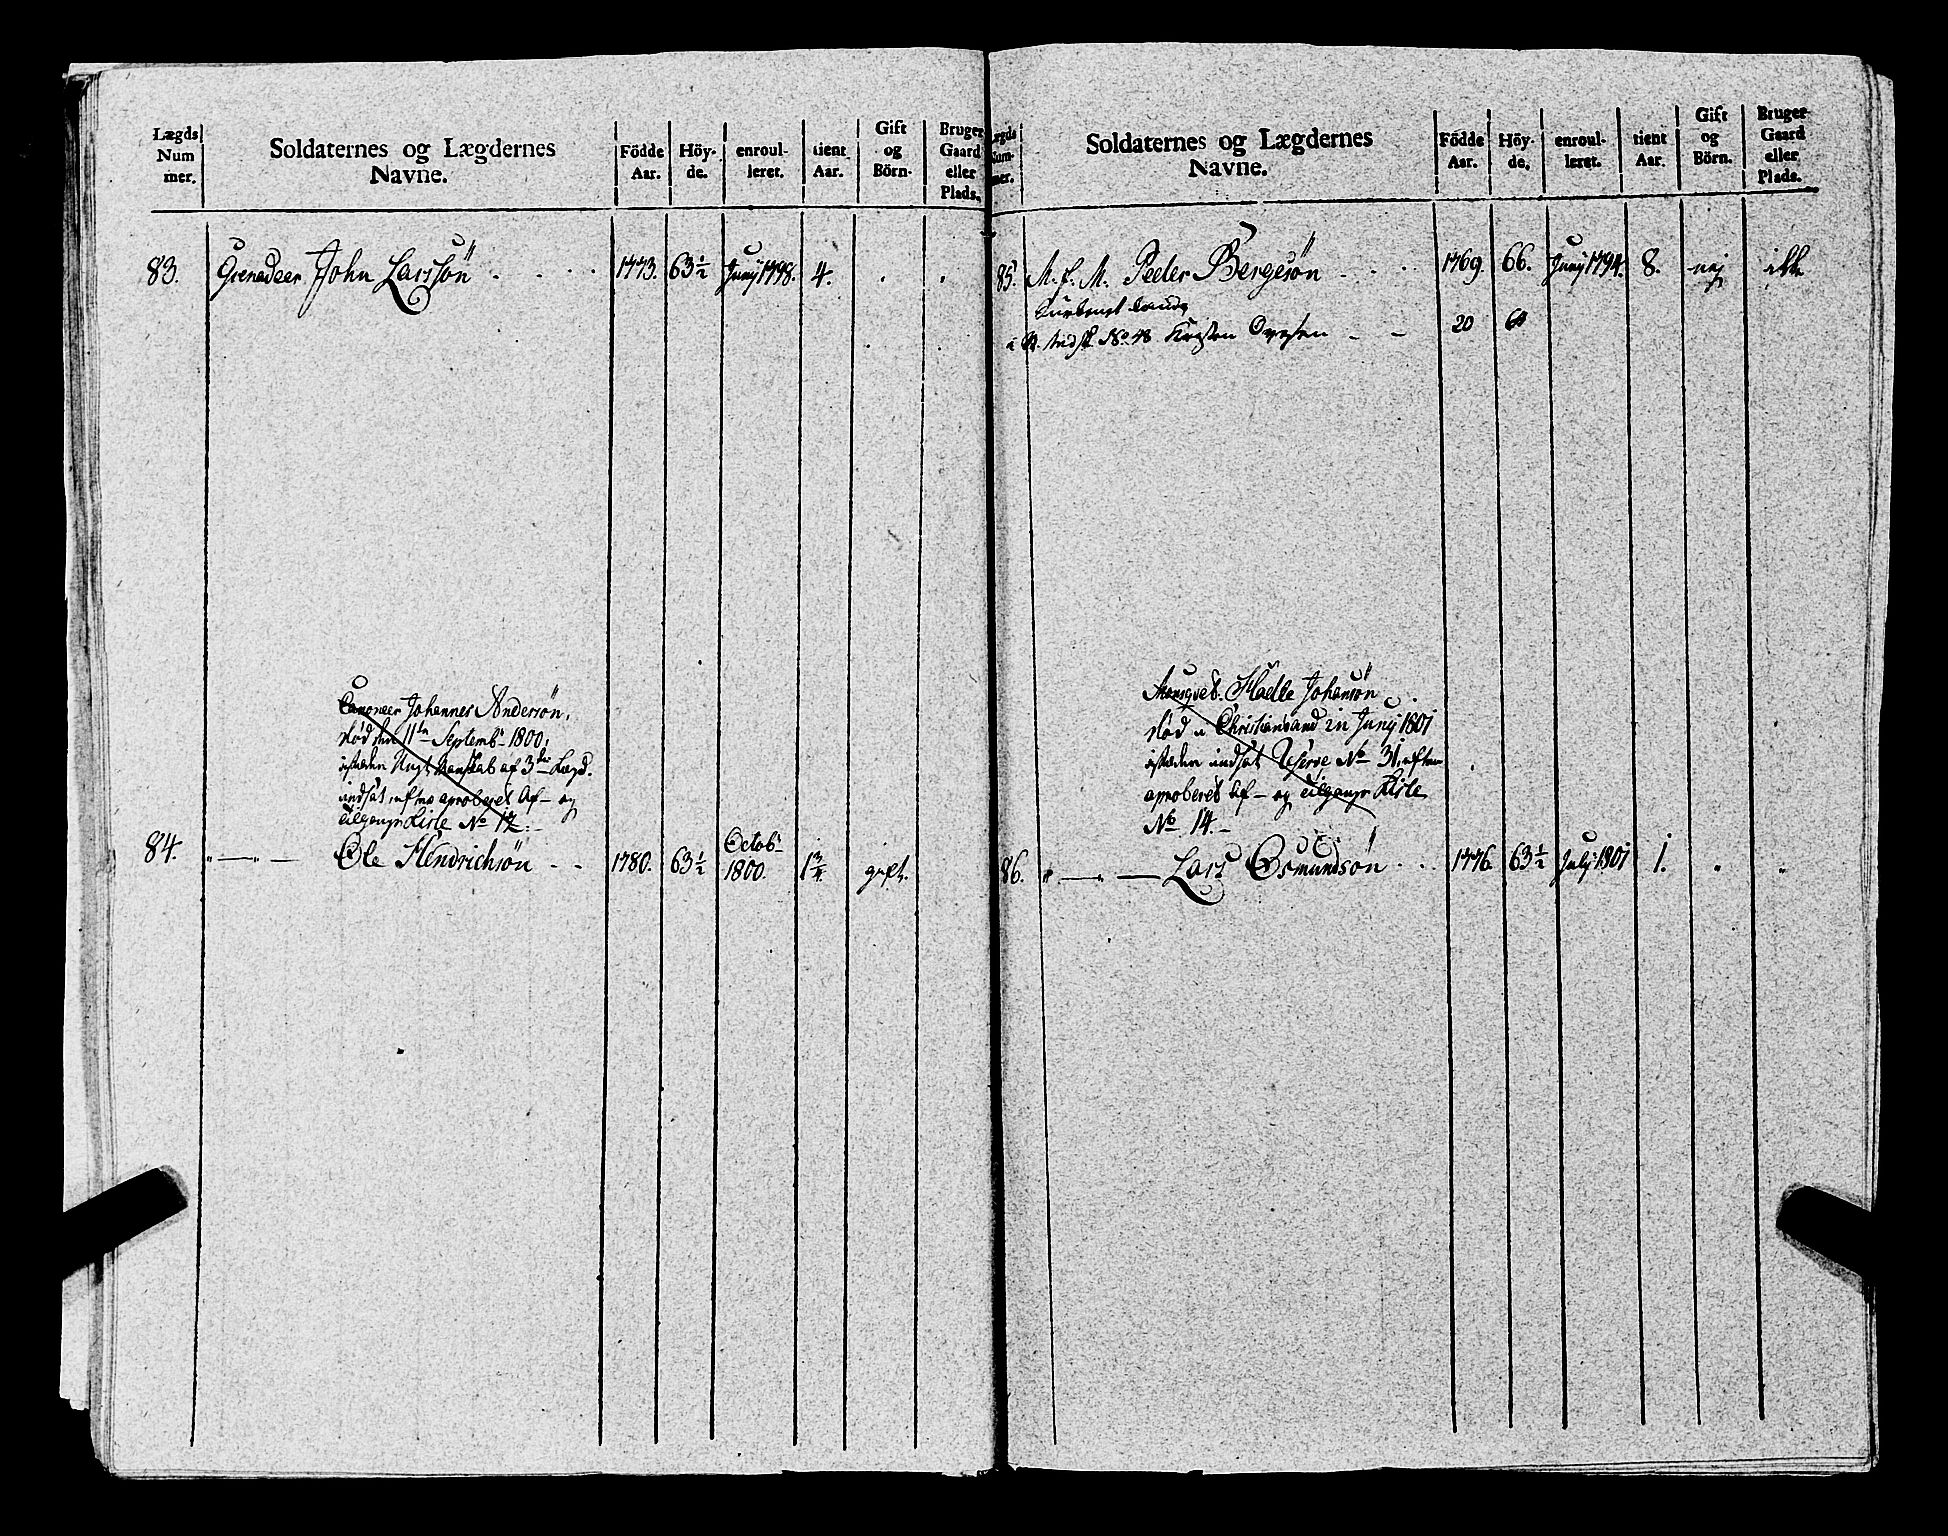 Lægds Num mer.
Soldaternes og Lægdernes Navne.
Födde Aar.
Höy- de.
enroul- leret.
tient Aar.
Gift og Börn.
Bruger Gaard eller Plads.
83. Grenadeer John Larssön 1773. 63½ Junÿ 1798. 4.
Canoneer Johannes Andersön,
død den 11te Septembr 1800,
isteden Ungt Manskab af 3die Lægd.
indsat, efter aproberet Af- og
tilgangs Liste No 12.
84. Ole Hendrichsön 1780. 63½ Octobr 1800. 1¾ gift.
Lægds Num- mer.
Soldaternes og Lægdernes Navne.
Födde Aar.
Höy- de.
enroul- leret.
tient Aar.
Gift og Börn.
Bruger Gaard eller Plads.
85. M. f. M. Peder Bergesön 1769. 66. Junÿ 1794. 8. nej ikke
No 48 Kristen 20
Hadle Johansön
død i Christiansand in Junÿ 1801
isteden indsat Reserve No 31, efter
aproberet Af- og tilgangs Liste
No 14.
86. Lars Osmundsön 1776. 63½ Julÿ 1801 1.